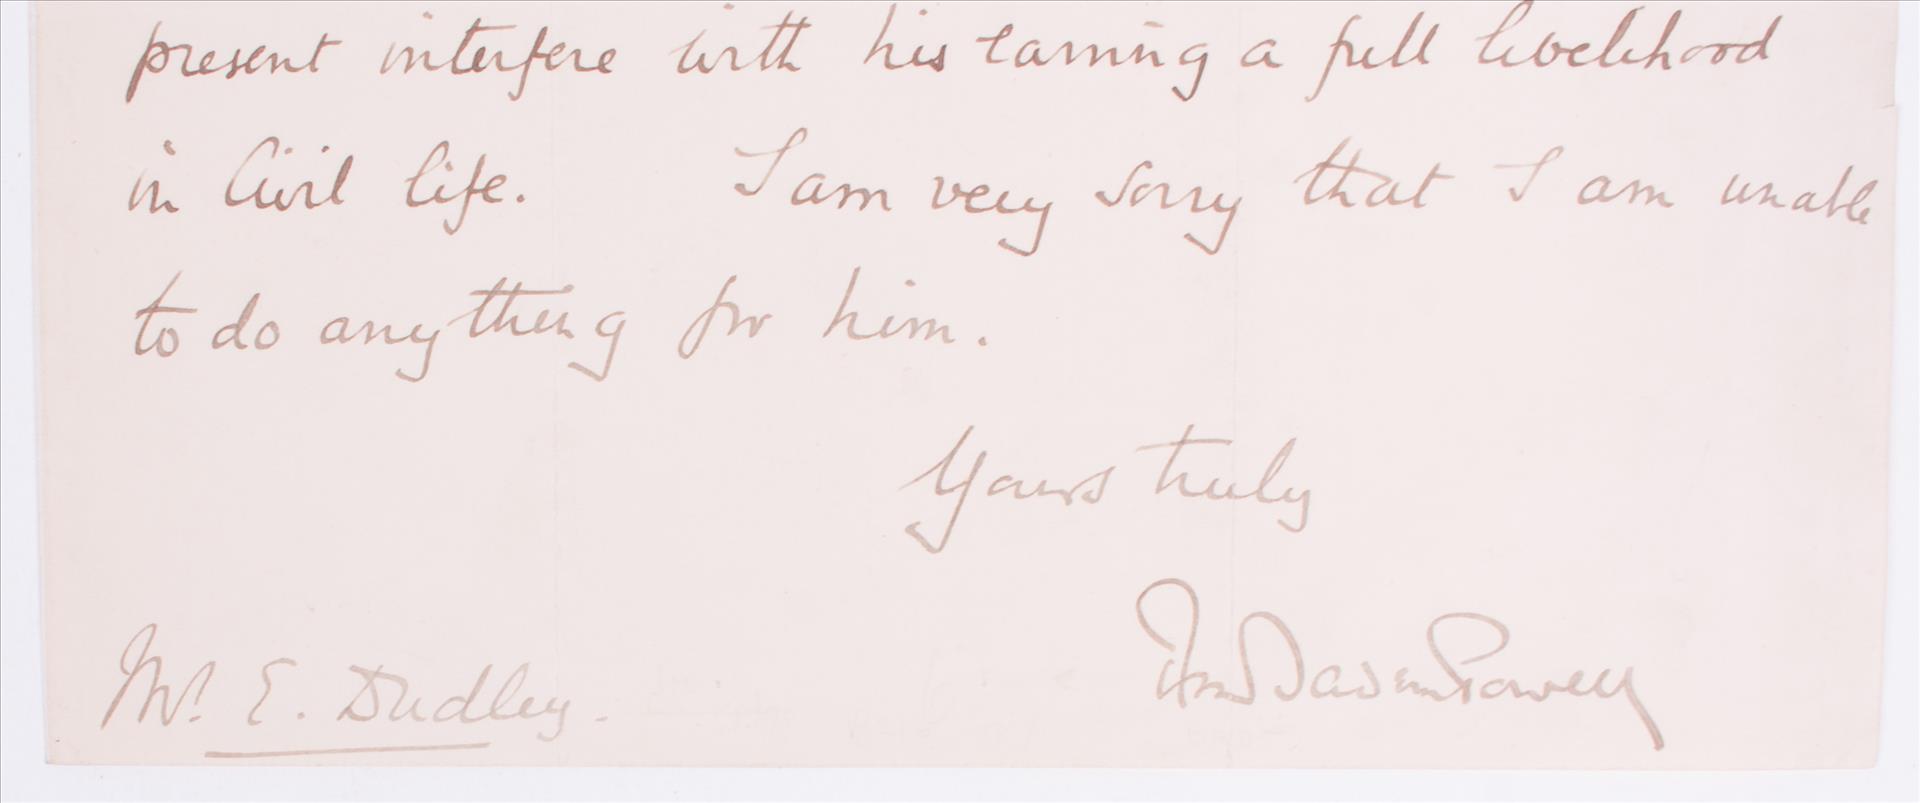 present interfere with his earning a full livelihood
in Civil life. I am very sorry that I am unable
to do anything for him.
Yours truly
Mr. E. Dudley.